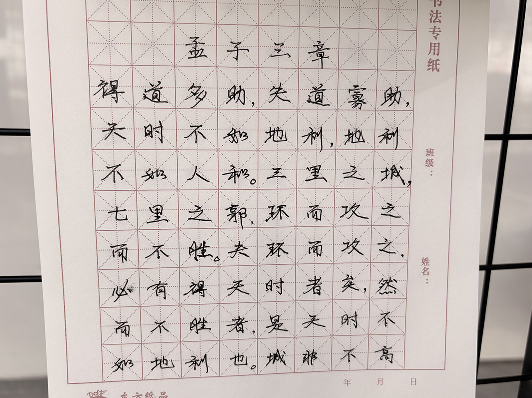 孟子三章
得道多助,失道寡助,
天时不如地利,地利
不如人和。三里之城,
七里之郭,环而攻之
而不胜。夫环而攻之,
必有得天时者矣,然
而不胜者,是天时不
如地利也。城非不高
书法专用纸
班级:
姓名:
年 月 日